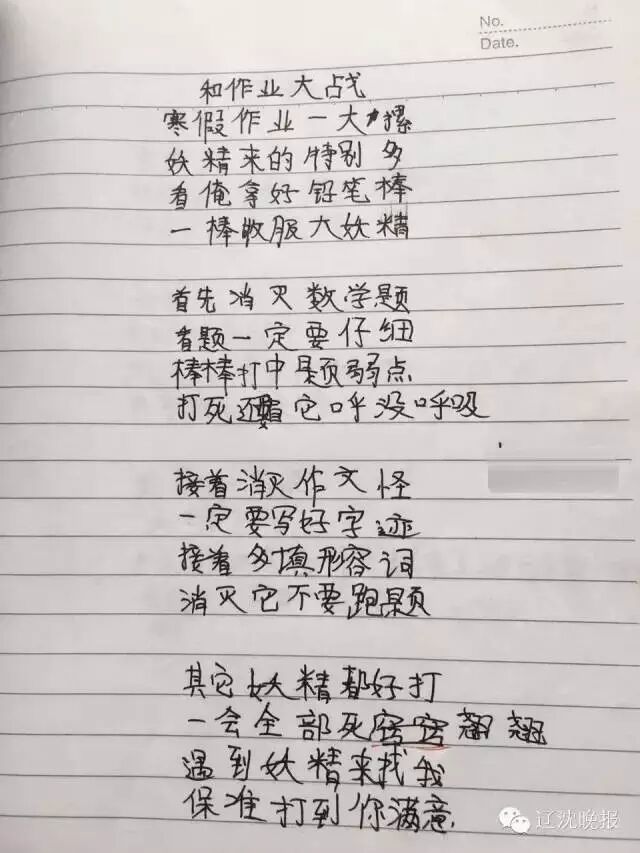 No.
Date.
和作业大战
寒假作业一大摞
妖精来的特别多
看俺拿好铅笔棒
一棒收服大妖精
首先消灭数学题
看题一定要仔细
棒棒打中题弱点
打死还看它呼没呼吸
接着消灭作文怪
一定要写好字迹
接着多填形容词
消灭它不要跑题
其它妖精都好打
一会全部死窍窍翘翘
遇到妖精来找我
保准打到你满意
辽沈晚报